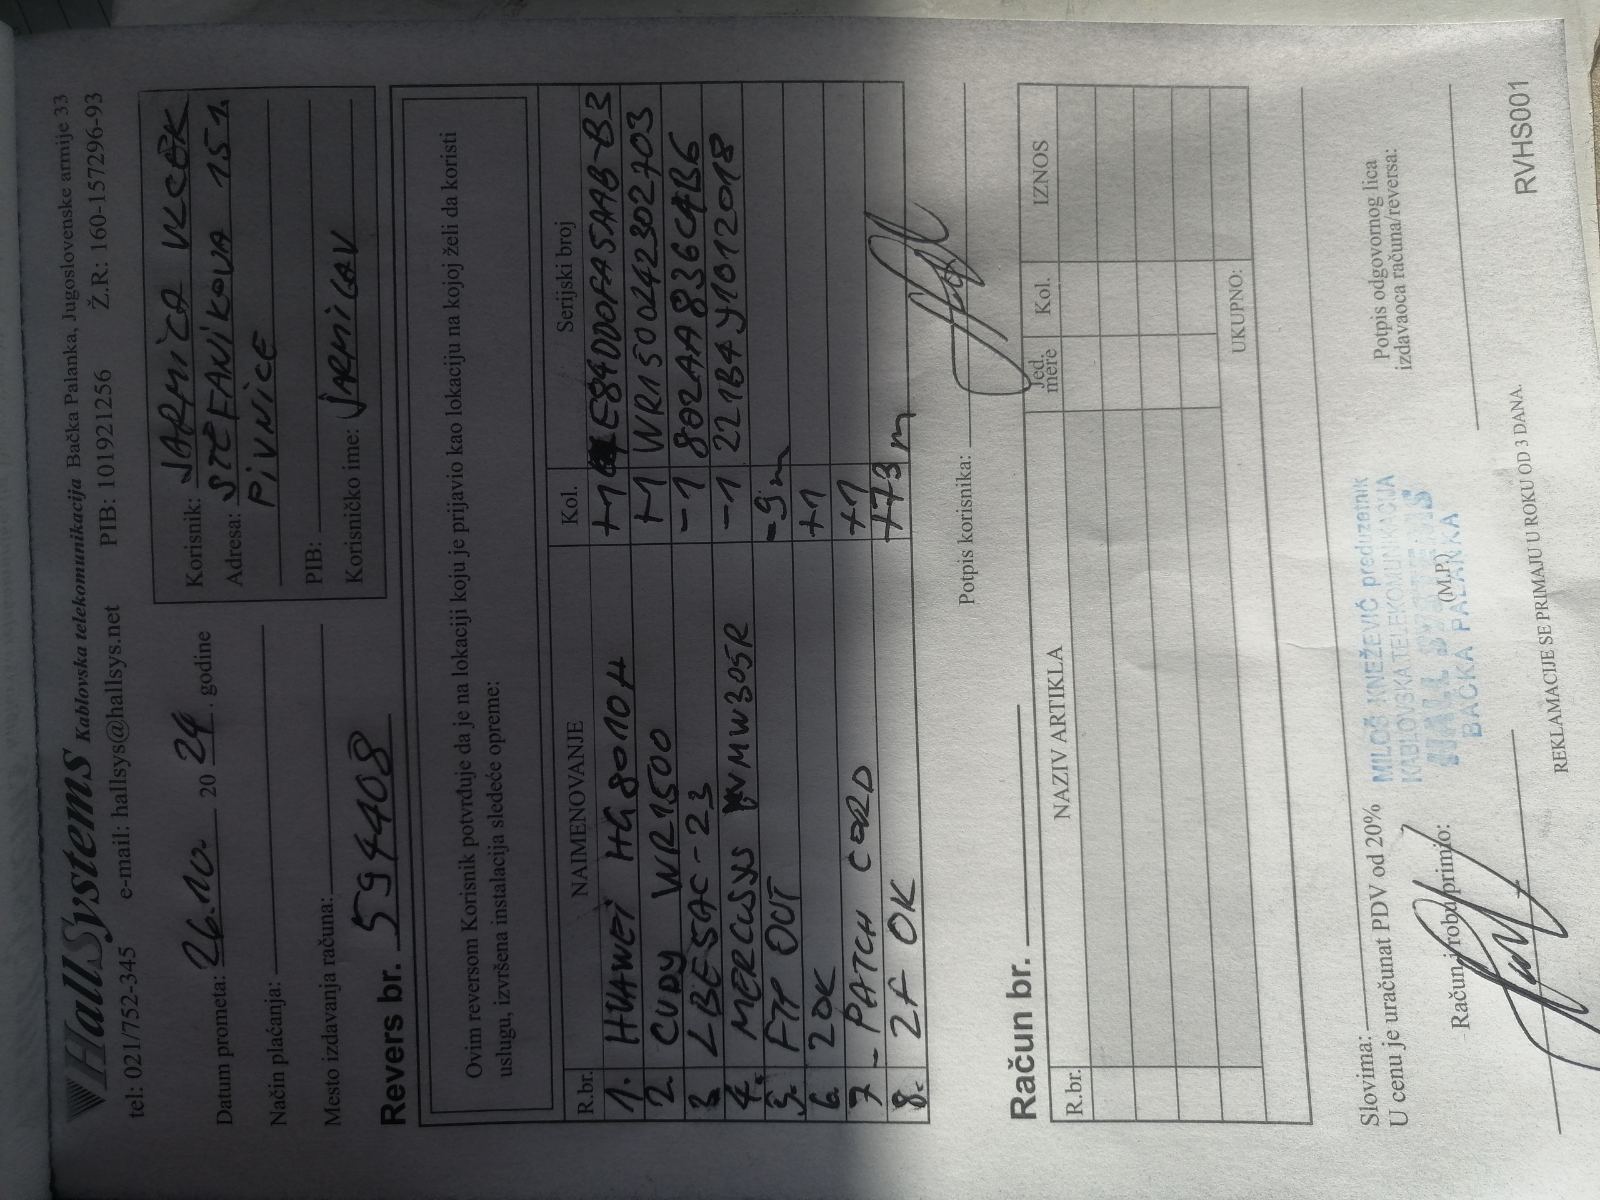 HallSystems Kablovska telekomunikacija Bačka Palanka, Jugoslovenske armije 33
tel: 021/752-345 e-mail: hallsys@hallsys.net PIB: 101921256 Ž.R: 160-157296-93
Datum prometa: 26.10. 20 24. godine
Način plaćanja:
Mesto izdavanja računa:
Korisnik: JARMILA VLČEK
Adresa: ŠTEFANIKOVA 151
PIVNICE
PIB:
Korisničko ime: JARMILAV
Revers br. 594408
Ovim reversom Korisnik potvrđuje da je na lokaciji koju je prijavio kao lokaciju na kojoj želi da koristi
uslugu, izvršena instalacija sledeće opreme:
R.br. NAIMENOVANJE Kol. Serijski broj
1. HUAWEI HG8010H +1 E84DD0FA5AAB-B3
2. CUDY WR1500 +1 WR1500242302703
3. LBE5AC-23 -1 802AA836C4B6
4. MERCUSYS MW305R -1 221B4Y1012018
5. FTP OUT -9m
6. ZOK +1
7 - PATCH CORD +1
8. 2F OK +73m
Potpis korisnika:
Račun br.
R.br. NAZIV ARTIKLA Jed. mere Kol. IZNOS
UKUPNO:
Slovima:
U cenu je uračunat PDV od 20%
Račun i robu primio:
MILOŠ KNEŽEVIĆ preduzetnik
KABLOVSKA TELEKOMUNIKACIJA
HALL SYSTEMS
BAČKA PALANKA
(M.P.)
Potpis odgovornog lica
izdavaoca računa/reversa:
REKLAMACIJE SE PRIMAJU U ROKU OD 3 DANA.
RVHS001